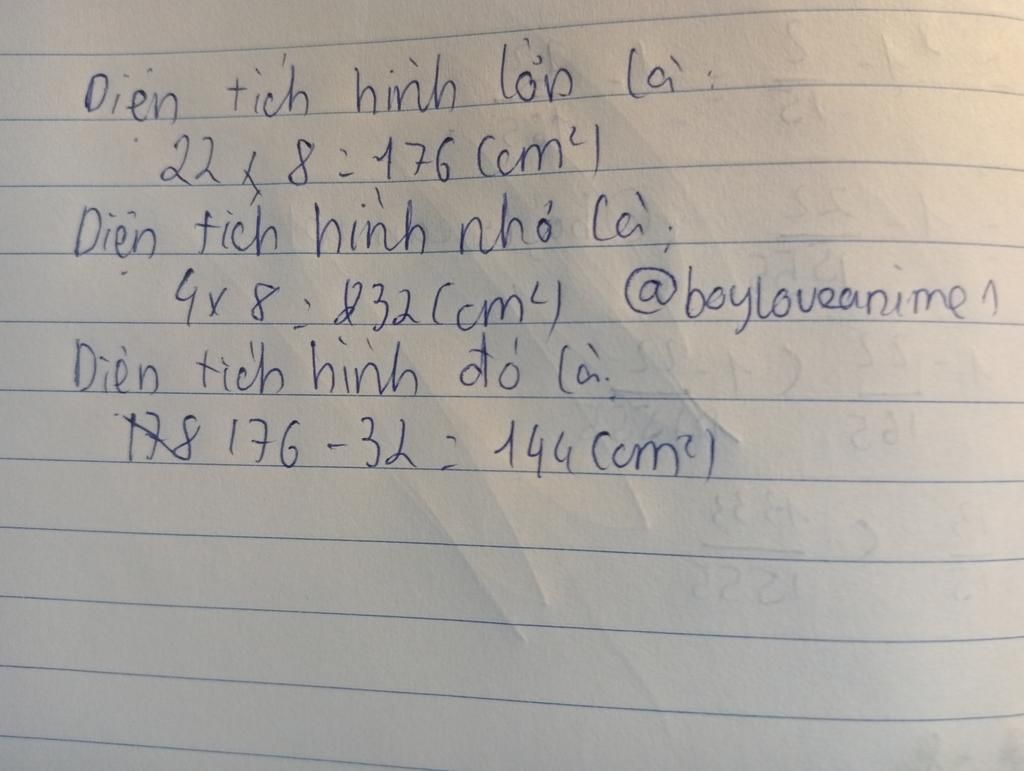 Diện tích hình lớn là:
22 x 8 = 176 (cm²)
Diện tích hình nhỏ là:
4 x 8 = 32 (cm²) @boyloveanime1
Diện tích hình đó là:
178 176 - 32 = 144 (cm²)